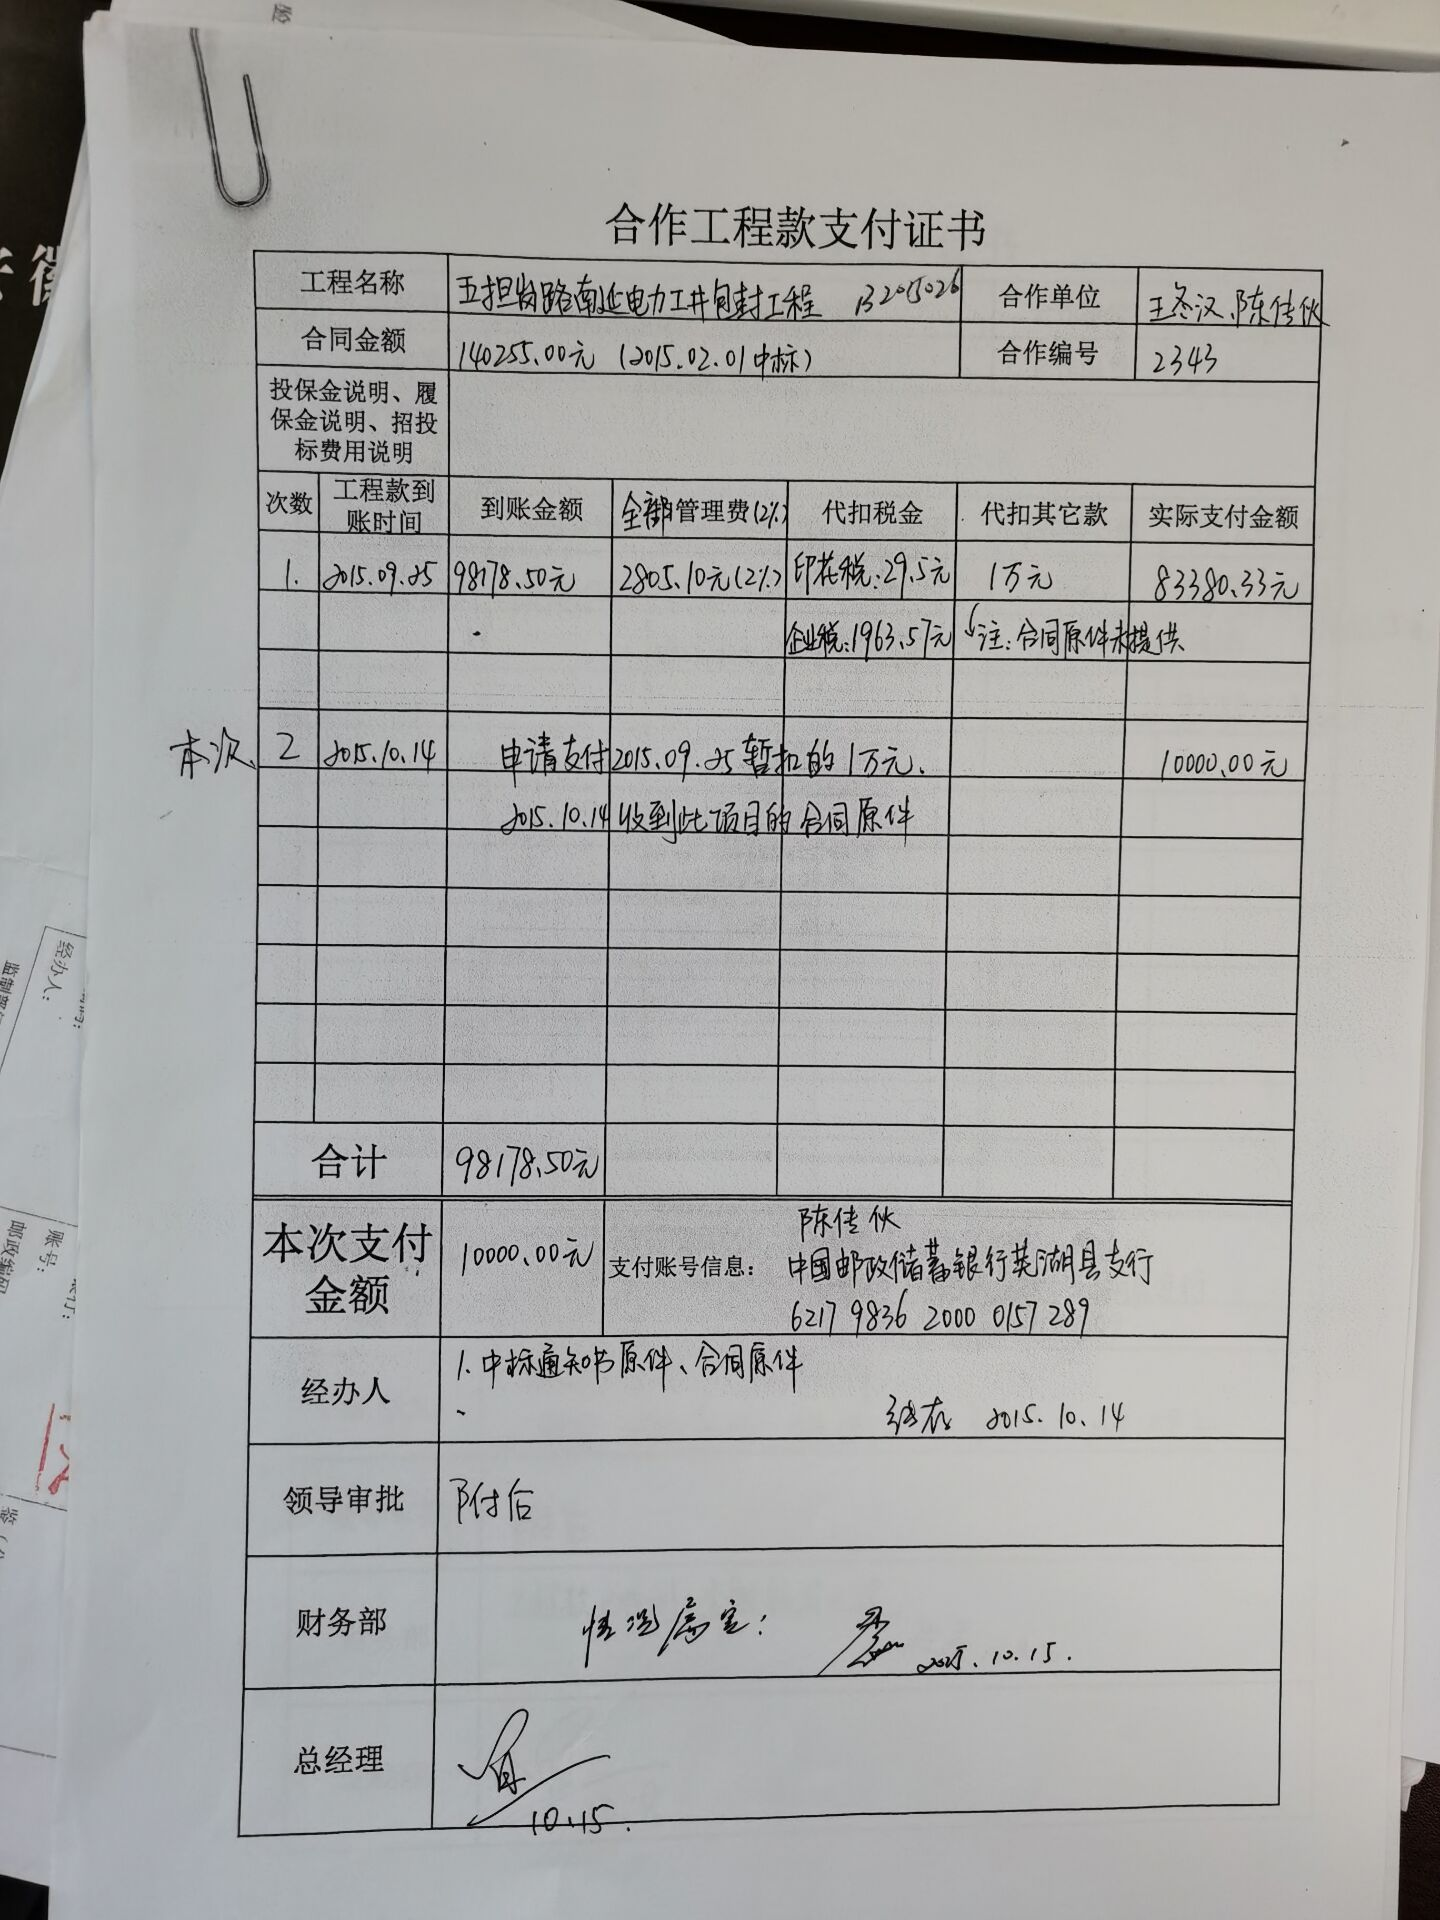 合作工程款支付证书
工程名称 五担岗路南延电力工井包封工程 B2015026 合作单位 王冬汉、陈传伙
合同金额 140255.00元 (2015.02.01中标) 合作编号 2343
投保金说明、履
保金说明、招投
标费用说明
次数 工程款到账时间 到账金额 全部管理费(2%) 代扣税金 代扣其它款 实际支付金额
1. 2015.09.25 98178.50元 2805.10元(2%) 印花税:29.5元 1万元 83380.33元
企业税:1963.57元 注:合同原件未提供
本次 2 2015.10.14 申请支付2015.09.25暂扣的1万元、 10000.00元
2015.10.14收到此项目的合同原件
合计 98178.50元
本次支付金额 10000.00元 支付账号信息:
陈传伙
中国邮政储蓄银行芜湖县支行
6217 9836 2000 0157 289
经办人 1.中标通知书原件、合同原件
2015.10.14
领导审批 附后
财务部 情况属实:
2015.10.15.
总经理
10.15.
经办人:
账号:
邮政编码